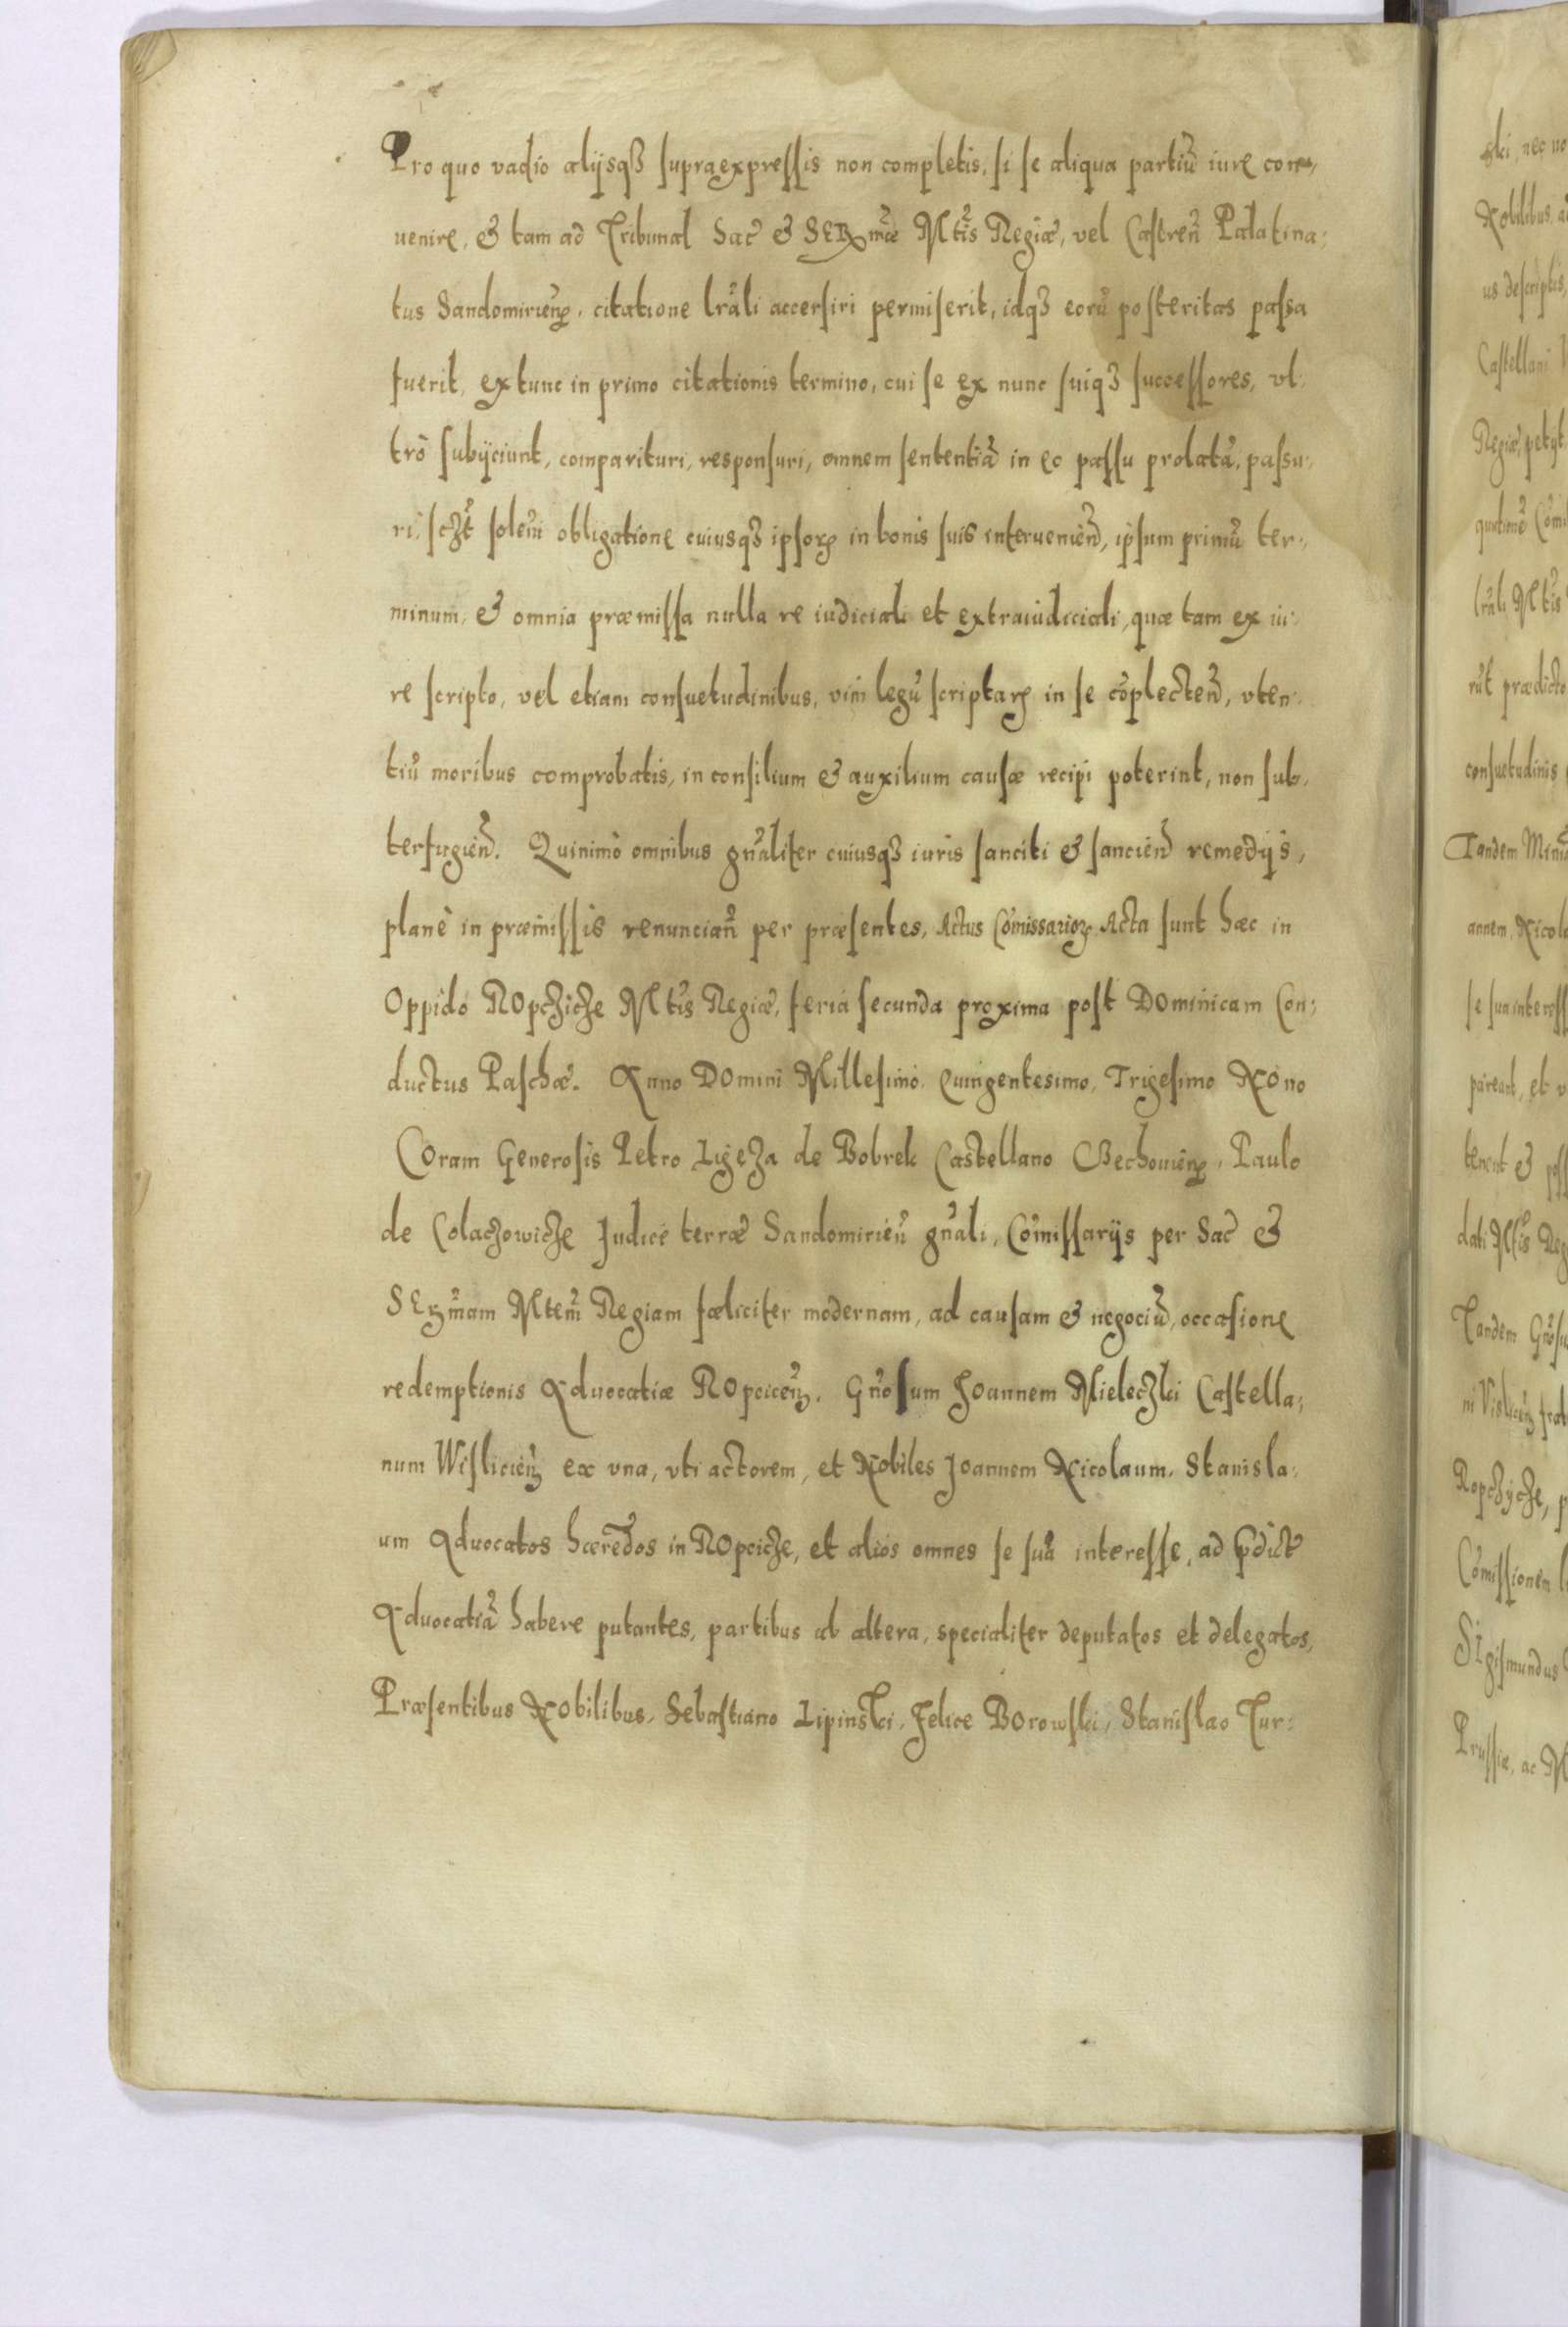 Pro quo vadio alijsqꝫ supraexpressis non completis, si se aliqua partiū iure con-
uenire, & tam ad Tribunal Sac̃ & SERmæ Mtis Regiæ, vel Castreñ Palatina:
tus Sandomirieñ, citatione lrãli accersiri permiserit, idqꝫ eorũ posteritas passa
fuerit, extunc in primo citationis termino, cui se ex nunc suiqꝫ successores, vl:
trò subijciunt, comparituri, responsuri, omnem sententiã in eo passu prolatã, passu:
ri, sczt solem̃ obligatione cuiusqꝫ ipsoꝝ in bonis suis interueniẽn, ipsum primũ ter:
minum, & omnia præmissa nulla re iudiciali et extraiudiciali, quæ tam ex iu:
re scripto, vel etiam consuetudinibus, vim legũ scriptaꝝ in se cõplecteñ, vten:
tiũ moribus comprobatis, in consilium & auxilium causæ recipi poterint, non sub:
terfugieñ. Quinimò omnibus gñaliter cuiusqꝫ iuris sanciti & sancieñ remedijs,
planè in præmissis renunciañ per præsentes, Actus Cõmissarioꝝ Acta sunt hæc in
Oppido ROpczicze Mtis Regiæ, feria secunda proxima post DOminicam Con:
ductus Paschæ. Anno DOmini Millesimo Quingentesimo, Trigesimo NOno
COram Generosis Petro Ligeza de Bobrek Castellano CZechouieñ, Paulo
de Colaczowicze Judice terræ Sandomirieñ gñali, Cõmissarijs per Sac̃ &
SERmam Mtem Regiam fæliciter modernam, ad causam & negociũ, occasione
redemptionis Aduocatiæ ROpciceñ. Gñosum JOannem Mieleczki Castella:
num Wislicieñ ex vna, vti actorem, et NObiles JOannem Nicolaum, Stanisla:
um Aduocatos hæredes in ROpcicze, et alios omnes se suã interesse, ad p̃dict
Aduocatiã habere putantes, partibus ab altera, specialiter deputatos et delegatos,
Præsentibus NObilibus, Sebastiano Lipinski, Felice BOrowski, Stanislao Tur: